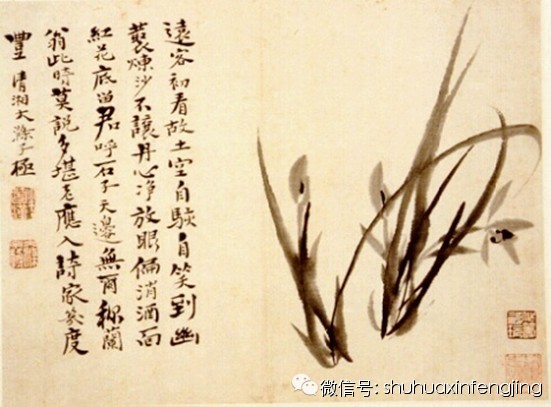 遠客初看故土空自駭自笑到幽
藂煉沙不讓丹心净放眼消酒面
紅花底留君呼石子天邊無爾称蘭
翁此時莫說多堪老應入詩家幾度
豐 清湘大滌子極
微信号: shuhuaxinfengjing